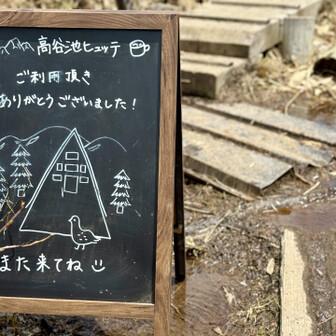 高谷池ヒュッテ
ご利用頂き
ありがとうございました!
また来てね